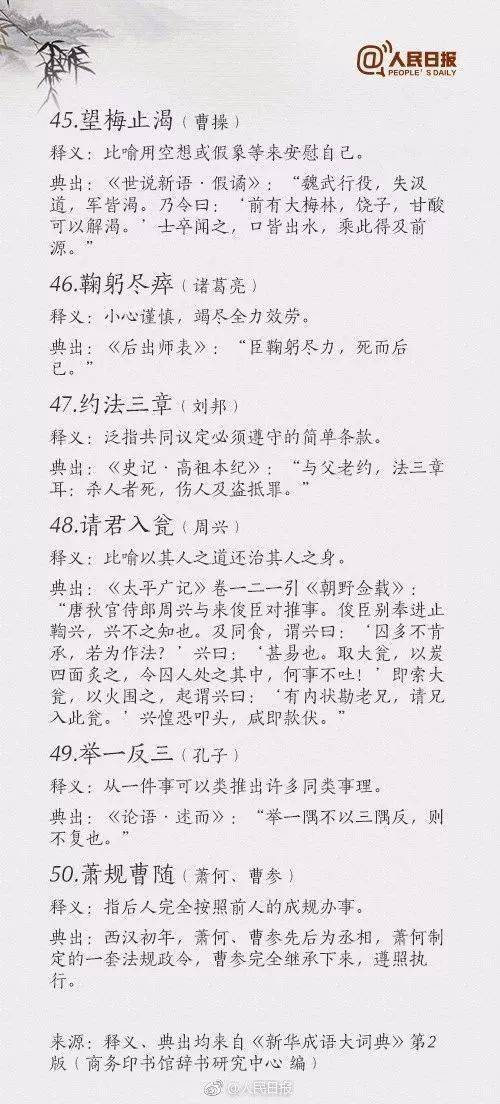 @人民日报
PEOPLE'S DAILY
45.望梅止渴（曹操）
释义：比喻用空想或假象等来安慰自己。
典出：《世说新语·假谲》：“魏武行役，失汲
道，军皆渴。乃令曰：‘前有大梅林，饶子，甘酸
可以解渴。’士卒闻之，口皆出水，乘此得及前
源。”
46.鞠躬尽瘁（诸葛亮）
释义：小心谨慎，竭尽全力效劳。
典出：《后出师表》：“臣鞠躬尽力，死而后
已。”
47.约法三章（刘邦）
释义：泛指共同议定必须遵守的简单条款。
典出：《史记·高祖本纪》：“与父老约，法三章
耳：杀人者死，伤人及盗抵罪。”
48.请君入瓮（周兴）
释义：比喻以其人之道还治其人之身。
典出：《太平广记》卷一二一引《朝野佥载》：
“唐秋官侍郎周兴与来俊臣对推事。俊臣别奉进止
鞫兴，兴不之知也。及同食，谓兴曰：‘囚多不肯
承，若为作法？’兴曰：‘甚易也。取大瓮，以炭
四面炙之，令囚人处之其中，何事不吐！’即索大
瓮，以火围之，起谓兴曰：‘有内状勘老兄，请兄
入此瓮。’兴惶恐叩头，咸即款伏。”
49.举一反三（孔子）
释义：从一件事可以类推出许多同类事理。
典出：《论语·述而》：“举一隅不以三隅反，则
不复也。”
50.萧规曹随（萧何、曹参）
释义：指后人完全按照前人的成规办事。
典出：西汉初年，萧何、曹参先后为丞相，萧何制
定的一套法规政令，曹参完全继承下来，遵照执
行。
来源：释义、典出均来自《新华成语大词典》第2
版（商务印书馆辞书研究中心 编）
@人民日报